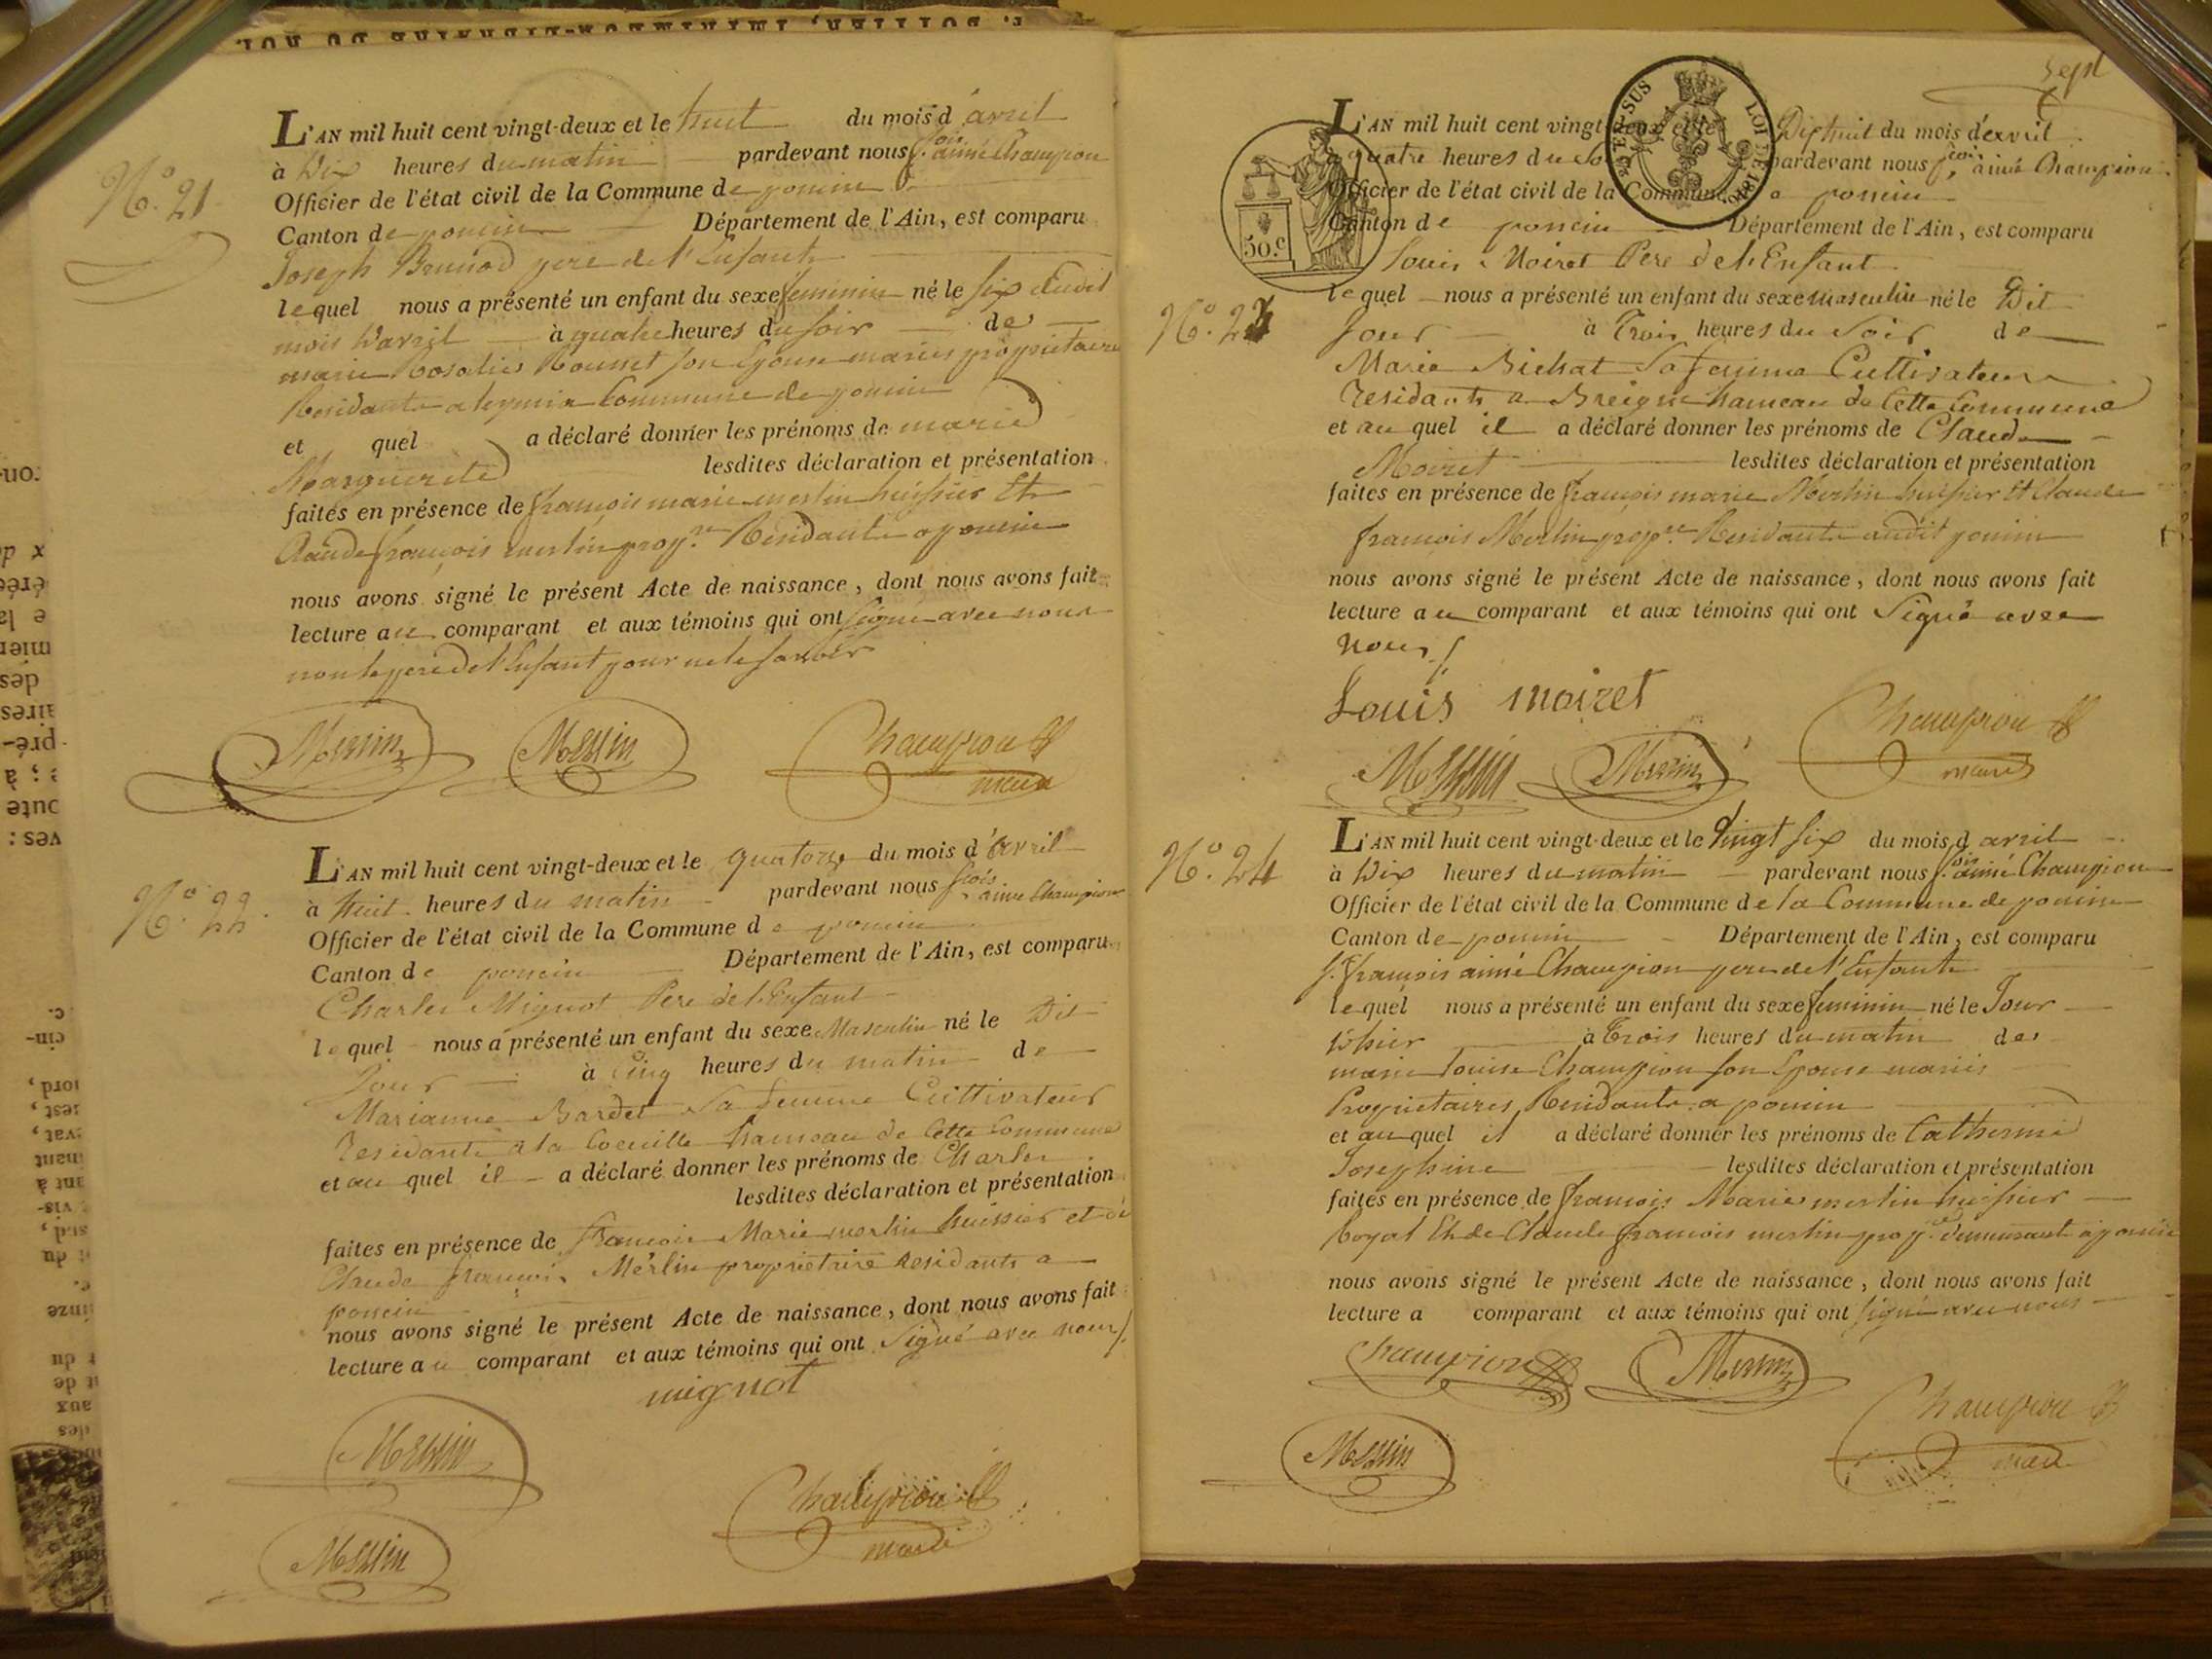 N.º 21
L'AN mil huit cent vingt-deux et le huit du mois d'avril
à Dix heures du matin pardevant nous f.cois aimé Champion
Officier de l'état civil de la Commune de poncin
Canton de poncin Département de l'Ain, est comparu
Joseph Brunod pere de l'Enfant
lequel nous a présenté un enfant du sexe feminin né le six dudit
mois d'avril à quatre heures du soir de
marie Rosalie son Epouse mariés proprietaires
Residants a commune de poncin
et quel a déclaré donner les prénoms de marie
Marguerite lesdites déclaration et présentation
faites en présence de françois marie merlin huissier Et
Claude françois merlin prop.re Residants a poncin
nous avons signé le présent Acte de naissance, dont nous avons fait
lecture au comparant et aux témoins qui ont signé avec nous
non le pere de l'Enfant pour ne le savoir
Merlin Merlin Champion
maire
N.º 22.
L'AN mil huit cent vingt-deux et le quatorze du mois d'avril
à huit heures du matin pardevant nous f.cois aimé Champion
Officier de l'état civil de la Commune de poncin
Canton de poncin Département de l'Ain, est comparu
Charles Mignot Pere de l'Enfant
lequel nous a présenté un enfant du sexe Masculin né le Dit
Jour à Cinq heures du matin de
Marianne Bardet sa femme Cultivateur
Residants a la hameau de Cette Commune
et au quel il a déclaré donner les prénoms de Charles
lesdites déclaration et présentation
faites en présence de françois Marie merlin huissier et de
Claude françois Merlin proprietaire Residants a
poncin
nous avons signé le présent Acte de naissance, dont nous avons fait
lecture au comparant et aux témoins qui ont Signé avec nous /.
mignot
Merlin
Champion
maire
Merlin
Sept
N.º 23
L'AN mil huit cent vingt-deux et le Dixhuit du mois d'avril
à quatre heures du Soir pardevant nous f.cois aimé Champion
Officier de l'état civil de la Commune de poncin
Canton de poncin Département de l'Ain, est comparu
50.c
Louis Moiret Pere de l'Enfant
lequel nous a présenté un enfant du sexe masculin né le Dit
Jour à Trois heures du Soir de
Marie Bichat Sa femme Cultivateurs
Residants a hameau de Cette Commune
et au quel il a déclaré donner les prénoms de Claude
Moiret lesdites déclaration et présentation
faites en présence de françois marie Merlin huissier Et Claude
françois Merlin prop.re Residants audit poncin
nous avons signé le présent Acte de naissance, dont nous avons fait
lecture au comparant et aux témoins qui ont Signé avec
nous /.
Louis moiret
Champion
maire
Merlin Merlin
N.º 24
L'AN mil huit cent vingt-deux et le Vingt six du mois d'avril
à Dix heures du matin pardevant nous f.cois aimé Champion
Officier de l'état civil de la Commune de la Commune de poncin
Canton de poncin Département de l'Ain, est comparu
S.r françois aimé Champion pere de l'Enfant
lequel nous a présenté un enfant du sexe feminin né le Jour
d'hier à Trois heures du matin de
marie Louise Champion son Epouse mariés
Proprietaires Residants a poncin
et au quel il a déclaré donner les prénoms de Catherine
Josephine lesdites déclaration et présentation
faites en présence de françois Marie merlin huissier
Royal Et de Claude françois merlin prop.re demeurant a poncin
nous avons signé le présent Acte de naissance, dont nous avons fait
lecture a comparant et aux témoins qui ont signé avec nous
Champion Merlin
Champion
maire
Merlin